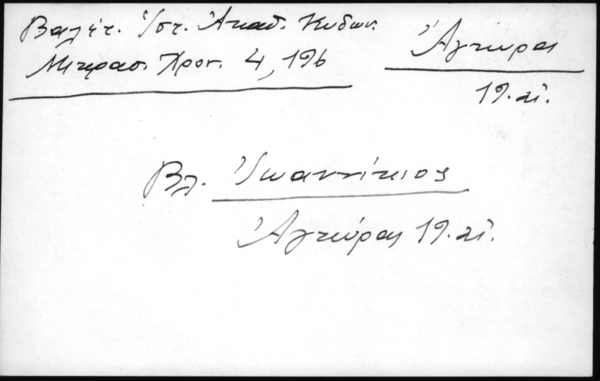 Βαλέτ. Ἱστ. Ἀκαδ. Κυδων.
Μικρασ. Χρον. 4, 196
Ἀγκύρας
19. αἰ.
Βλ. Ἰωαννίκιος
Ἀγκύρας 19. αἰ.